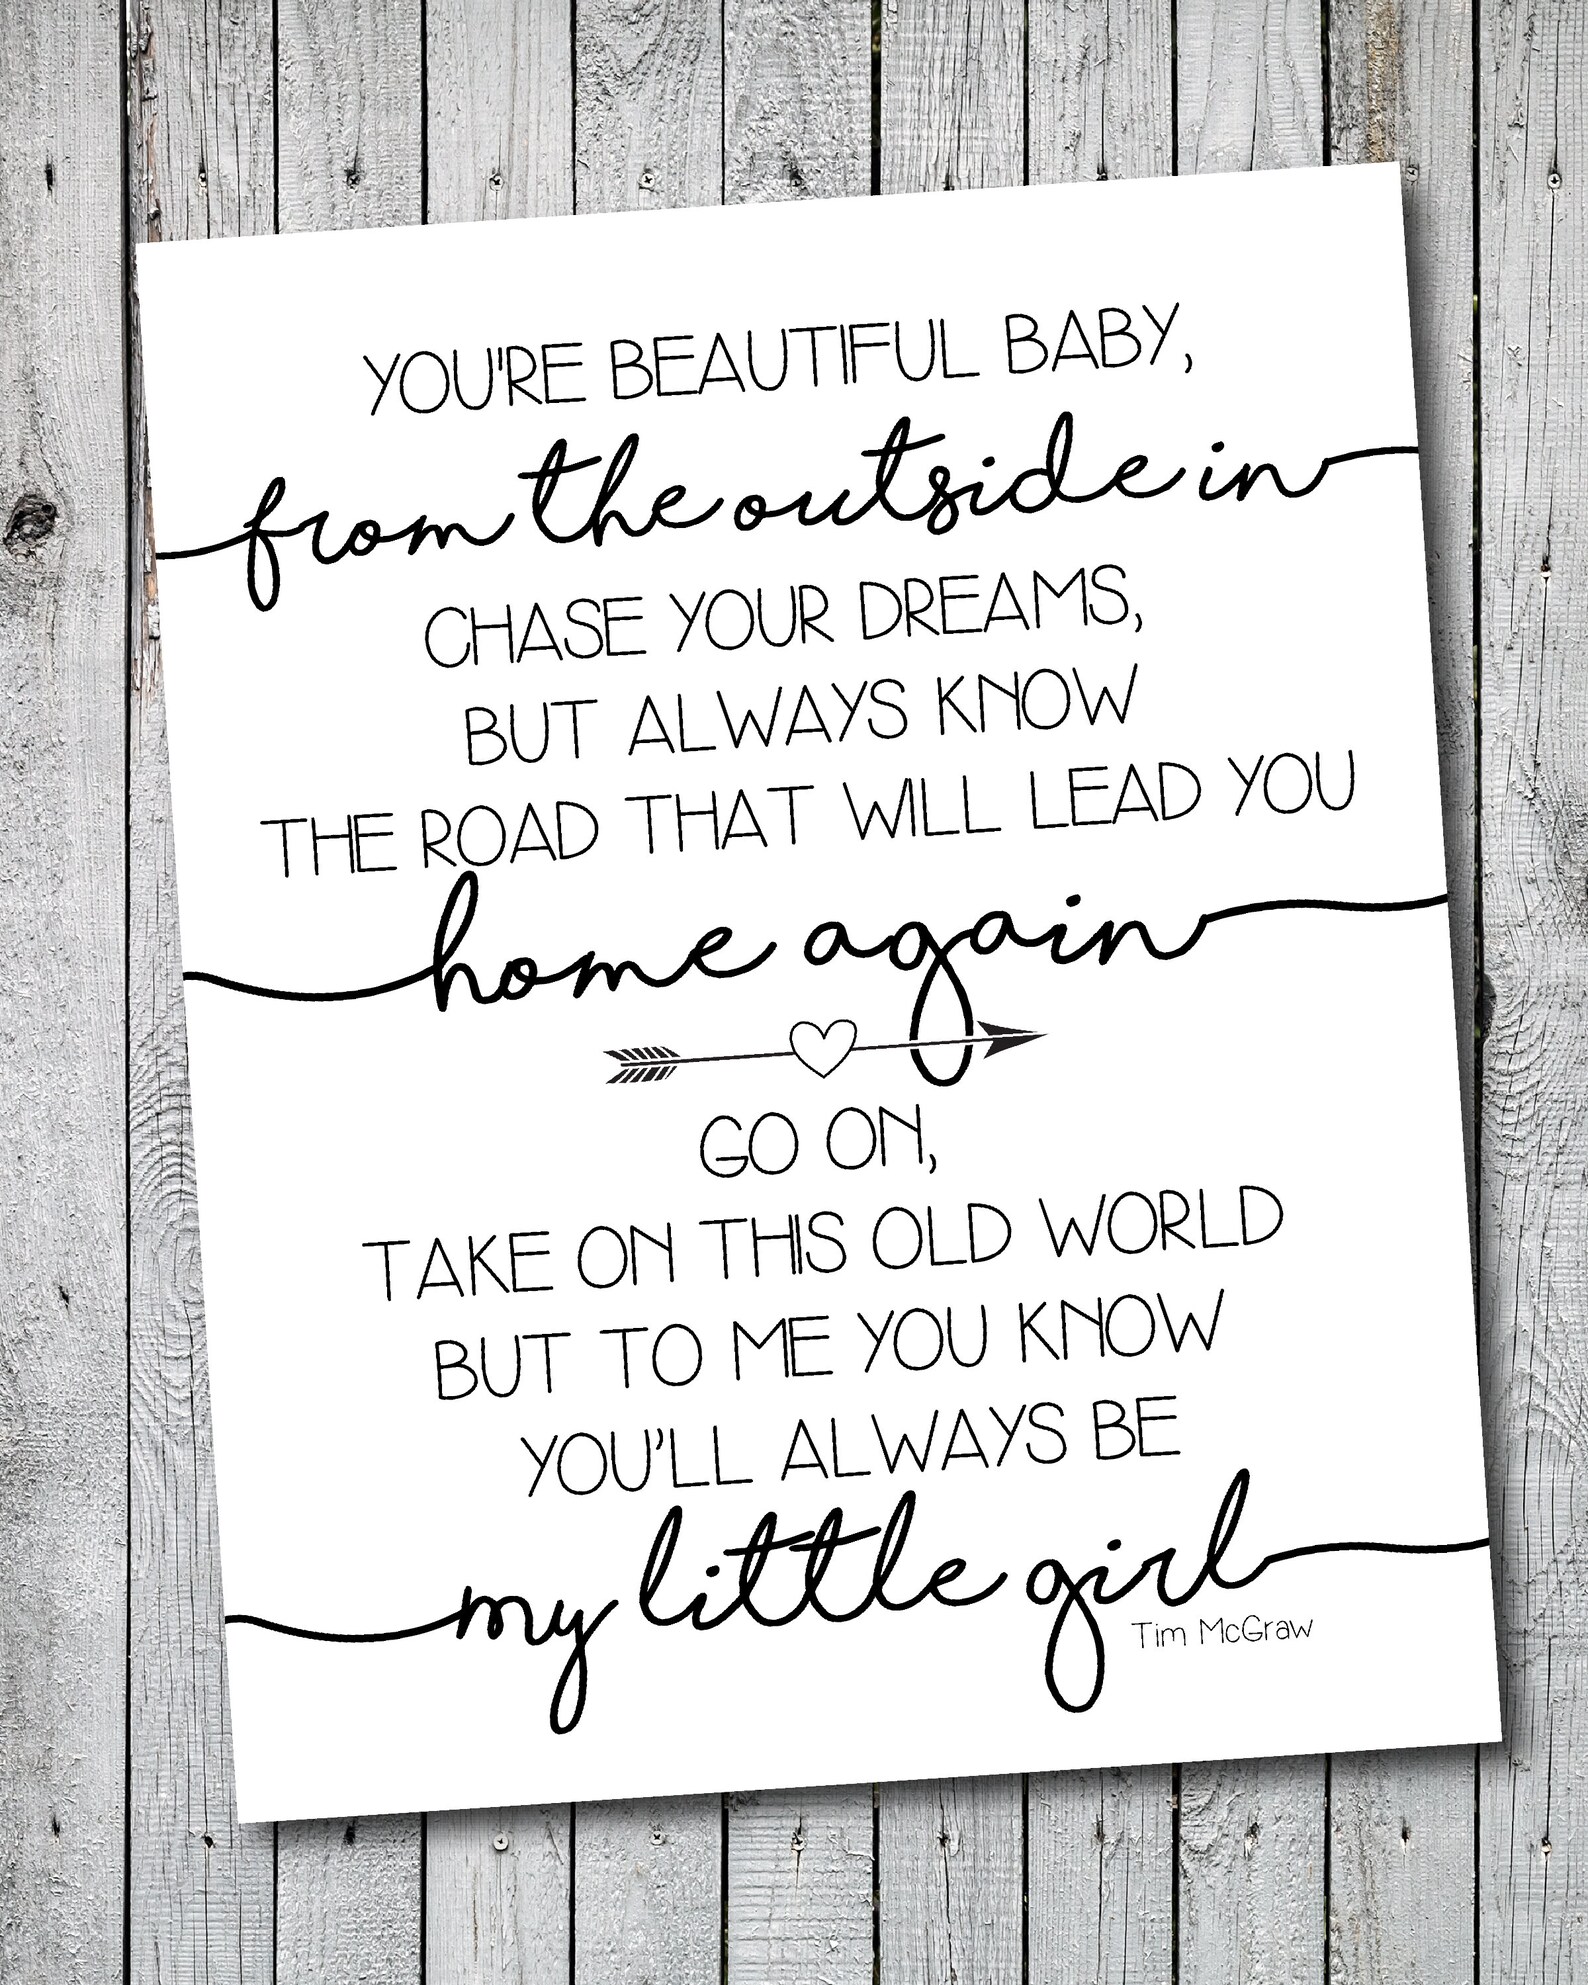 YOU'RE BEAUTIFUL BABY,
from the outside in
CHASE YOUR DREAMS,
BUT ALWAYS KNOW
THE ROAD THAT WILL LEAD YOU
home again
GO ON,
TAKE ON THIS OLD WORLD
BUT TO ME YOU KNOW
YOU'LL ALWAYS BE
my little girl
Tim McGraw